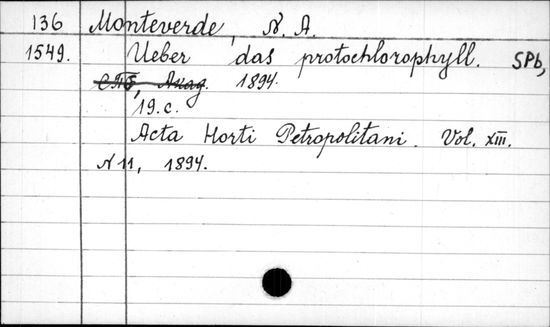 136 Monteverde, N. A.
1549. Ueber das protochlorophyll. SPb,
1894.
19.c.
Acta Horti Petropolitani. Vol. XIII.
N 11, 1894.